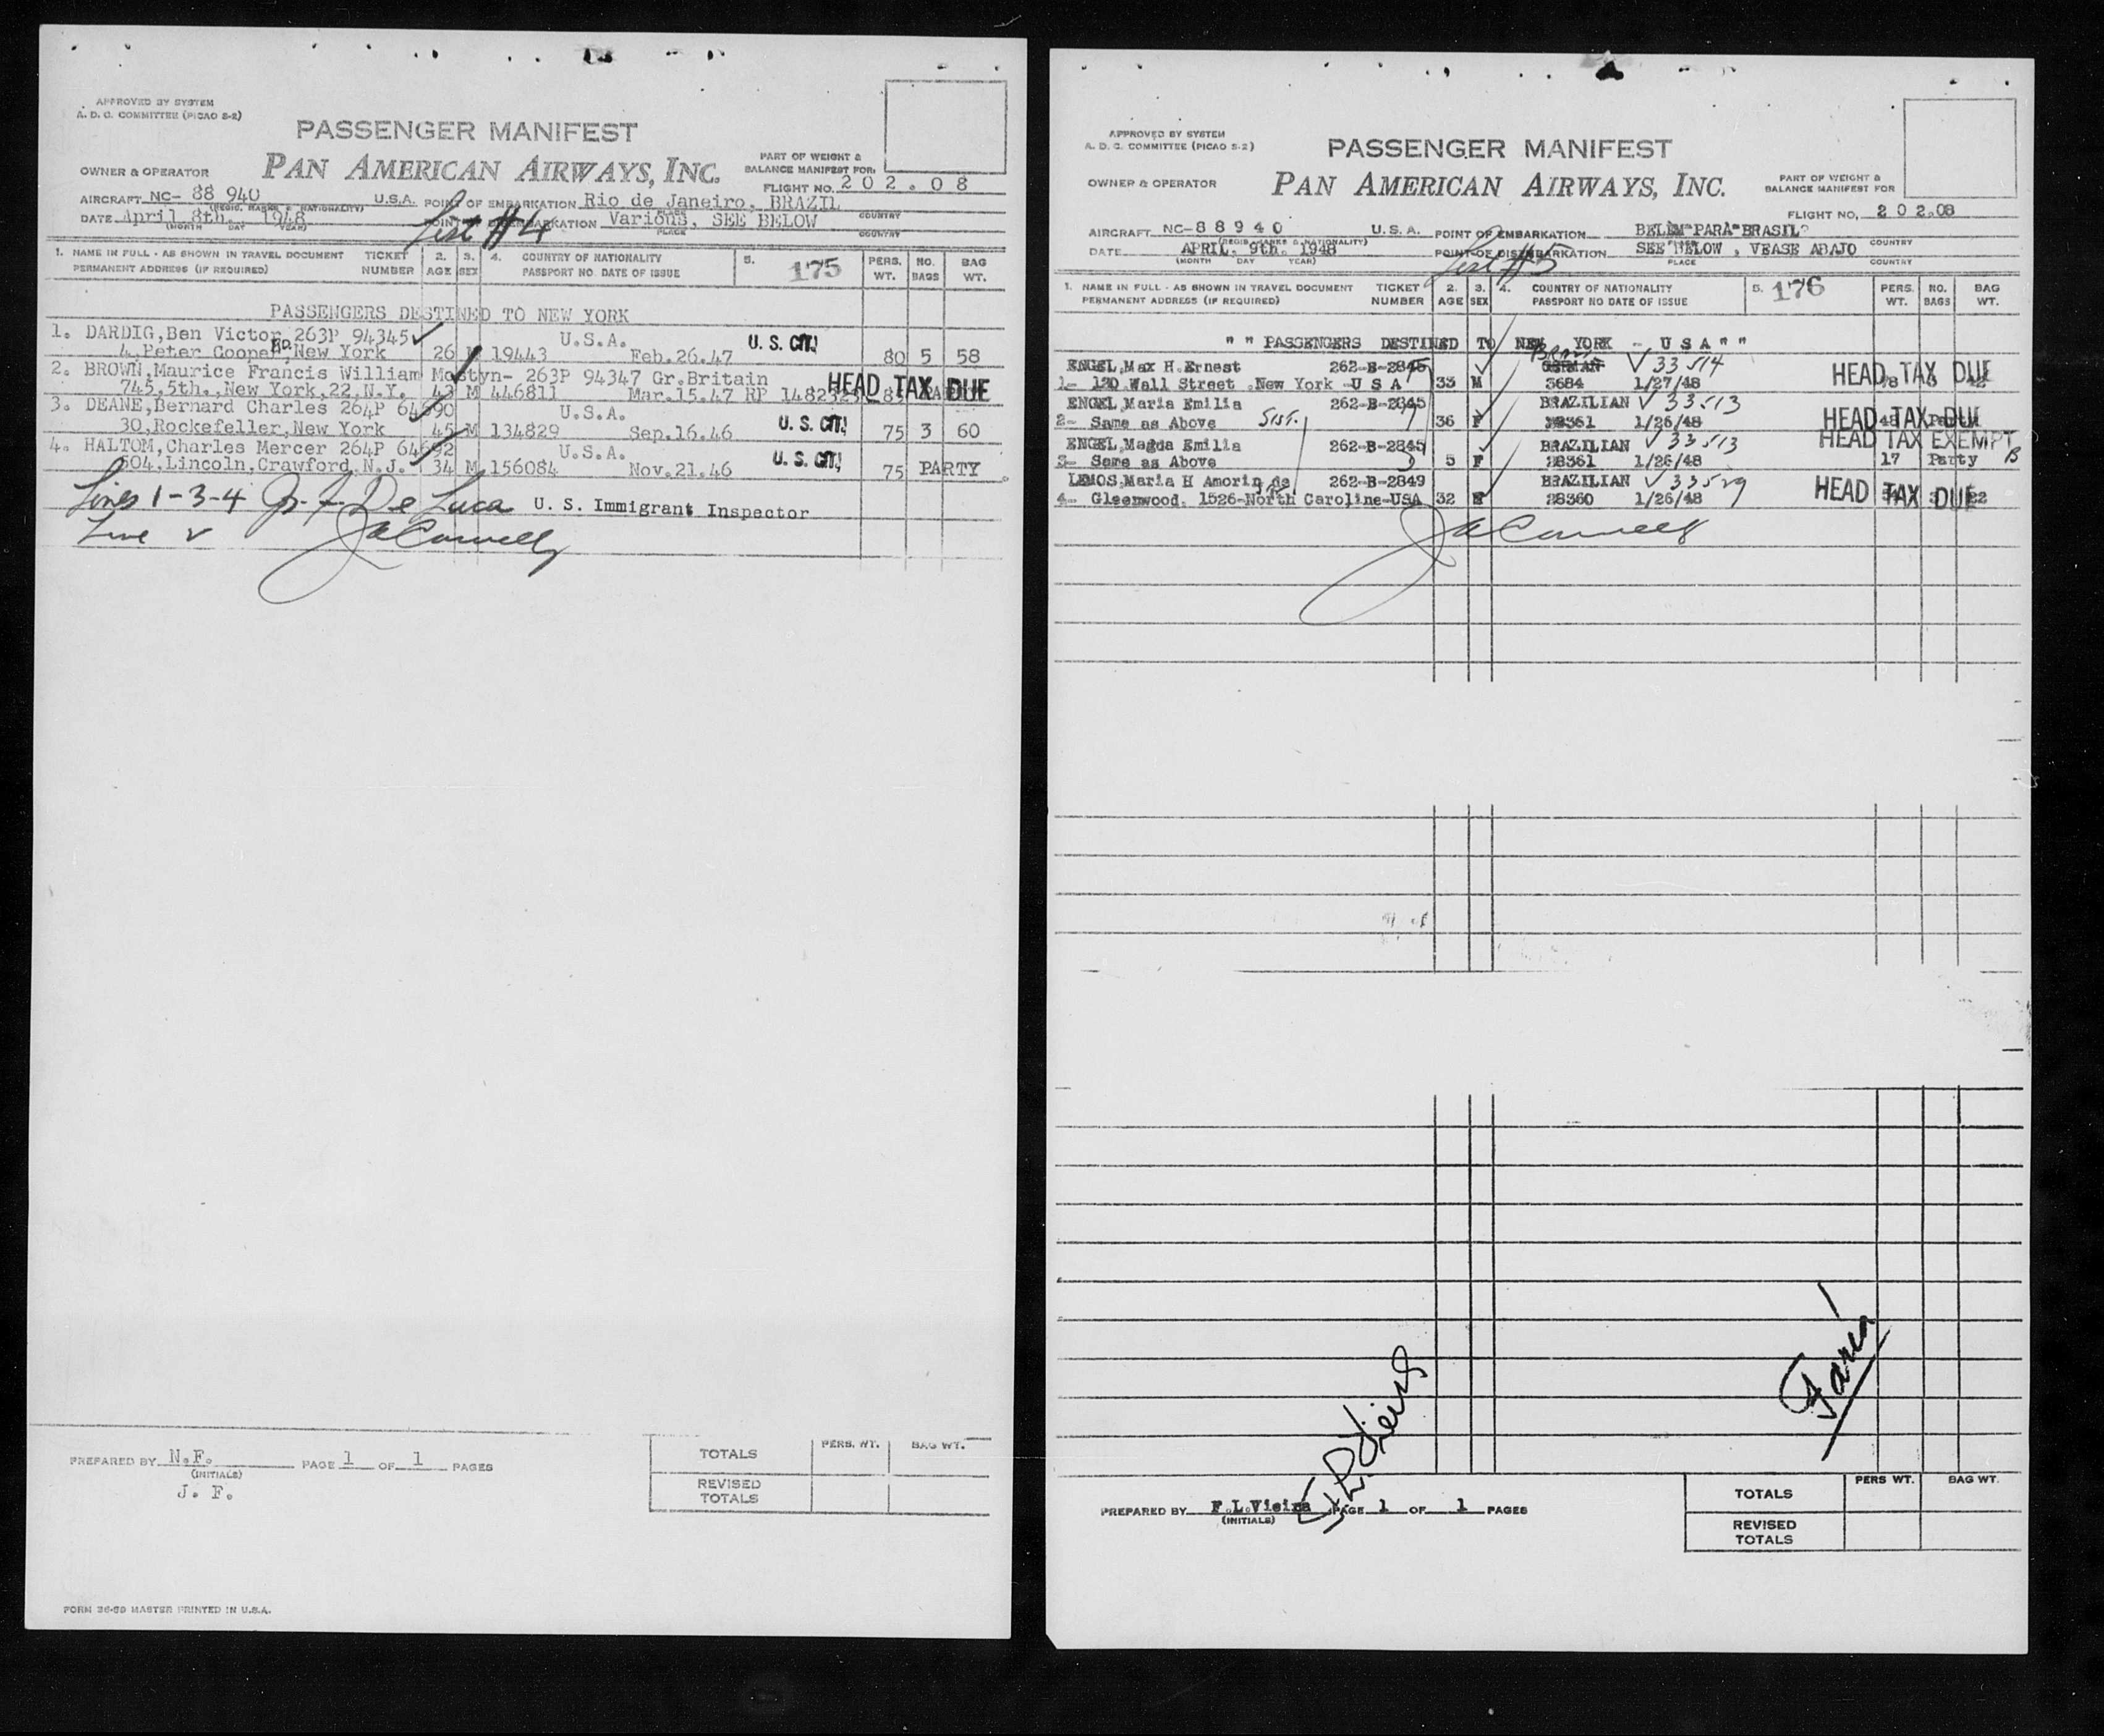 APPROVED BY SYSTEM
A. D. C. COMMITTEE (PICAO S-2)
PASSENGER MANIFEST
OWNER & OPERATOR PAN AMERICAN AIRWAYS, INC.
PART OF WEIGHT &
BALANCE MANIFEST FOR
FLIGHT NO. 202.08
AIRCRAFT NC- 88 940 U.S.A. POINT OF EMBARKATION Rio de Janeiro, BRAZIL
(REGIS. MARKS & NATIONALITY) PLACE COUNTRY
DATE April 8th., 1948 Various, SEE BELOW
(MONTH DAY YEAR) PLACE COUNTRY
List #4
1. NAME IN FULL - AS SHOWN IN TRAVEL DOCUMENT TICKET 2. 3. 4. COUNTRY OF NATIONALITY 5. 175 PERS. NO. BAG
PERMANENT ADDRESS (IF REQUIRED) NUMBER AGE SEX PASSPORT NO. DATE OF ISSUE WT. BAGS WT.
PASSENGERS DESTINED TO NEW YORK
1. DARDIG,Ben Victor 263P 94345 U.S.A. U. S. CIT.
4,Peter Cooper Rd,New York 26 M 19443 Feb.26.47 80 5 58
2. BROWN,Maurice Francis William Mostyn- 263P 94347 Gr.Britain HEAD TAX DUE
745,5th.,New York,22,N.Y. 43 M 446811 Mar.15.47 RP
3. DEANE,Bernard Charles 264P 64690 U.S.A. U. S. CIT.
30,Rockefeller,New York 45 M 134829 Sep.16.46 75 3 60
4. HALTOM,Charles Mercer 264P 64692 U.S.A. U. S. CIT.
604,Lincoln,Crawford,N.J. 34 M 156084 Nov.21.46 75 PARTY
Lines 1-3-4 De Luca U. S. Immigrant Inspector
Line 2
PREPARED BY N.F. PAGE 1 OF 1 PAGES
(INITIALS)
J. F.
PERS. WT. BAG WT.
TOTALS
REVISED
TOTALS
FORM 36-50 MASTER PRINTED IN U.S.A.
APPROVED BY SYSTEM
A. D. C. COMMITTEE (PICAO S-2)
PASSENGER MANIFEST
OWNER & OPERATOR PAN AMERICAN AIRWAYS, INC.
PART OF WEIGHT &
BALANCE MANIFEST FOR
FLIGHT NO. 202.08
AIRCRAFT NC-88940 U.S.A. POINT OF EMBARKATION BELEM PARA BRASIL
(REGIS. MARKS & NATIONALITY) PLACE COUNTRY
DATE APRIL. 9th. 1948 POINT OF DISEMBARKATION SEE BELOW , VEASE ABAJO
(MONTH DAY YEAR) PLACE COUNTRY
List #5
1. NAME IN FULL - AS SHOWN IN TRAVEL DOCUMENT TICKET 2. 3. 4. COUNTRY OF NATIONALITY 5. 176 PERS. NO. BAG
PERMANENT ADDRESS (IF REQUIRED) NUMBER AGE SEX PASSPORT NO DATE OF ISSUE WT. BAGS WT.
" " PASSENGERS DESTINED TO NEW YORK - U S A " "
ENGEL,Max H.Ernest 262-B-2845 V 33514 HEAD TAX DUE
1- 120 Wall Street ,New York -U S A 33 M 3684 1/27/48
ENGEL,Maria Emilia 262-B-2845 BRAZILIAN V 33513 HEAD TAX DUE
2- Same as Above 36 F 28361 1/26/48
ENGEL,Magda Emilia 262-B-2845 BRAZILIAN V 33513 HEAD TAX EXEMPT
3- Same as Above 5 F 28361 1/26/48 17 Party
LEMOS,Maria H Amorin de 262-B-2849 BRAZILIAN V 33529 HEAD TAX DUE
4- Gleenwood, 1526-North Caroline-USA 32 F 28360 1/26/48
PREPARED BY F.L.Vieira PAGE 1 OF 1 PAGES
(INITIALS)
PERS WT. BAG WT.
TOTALS
REVISED
TOTALS